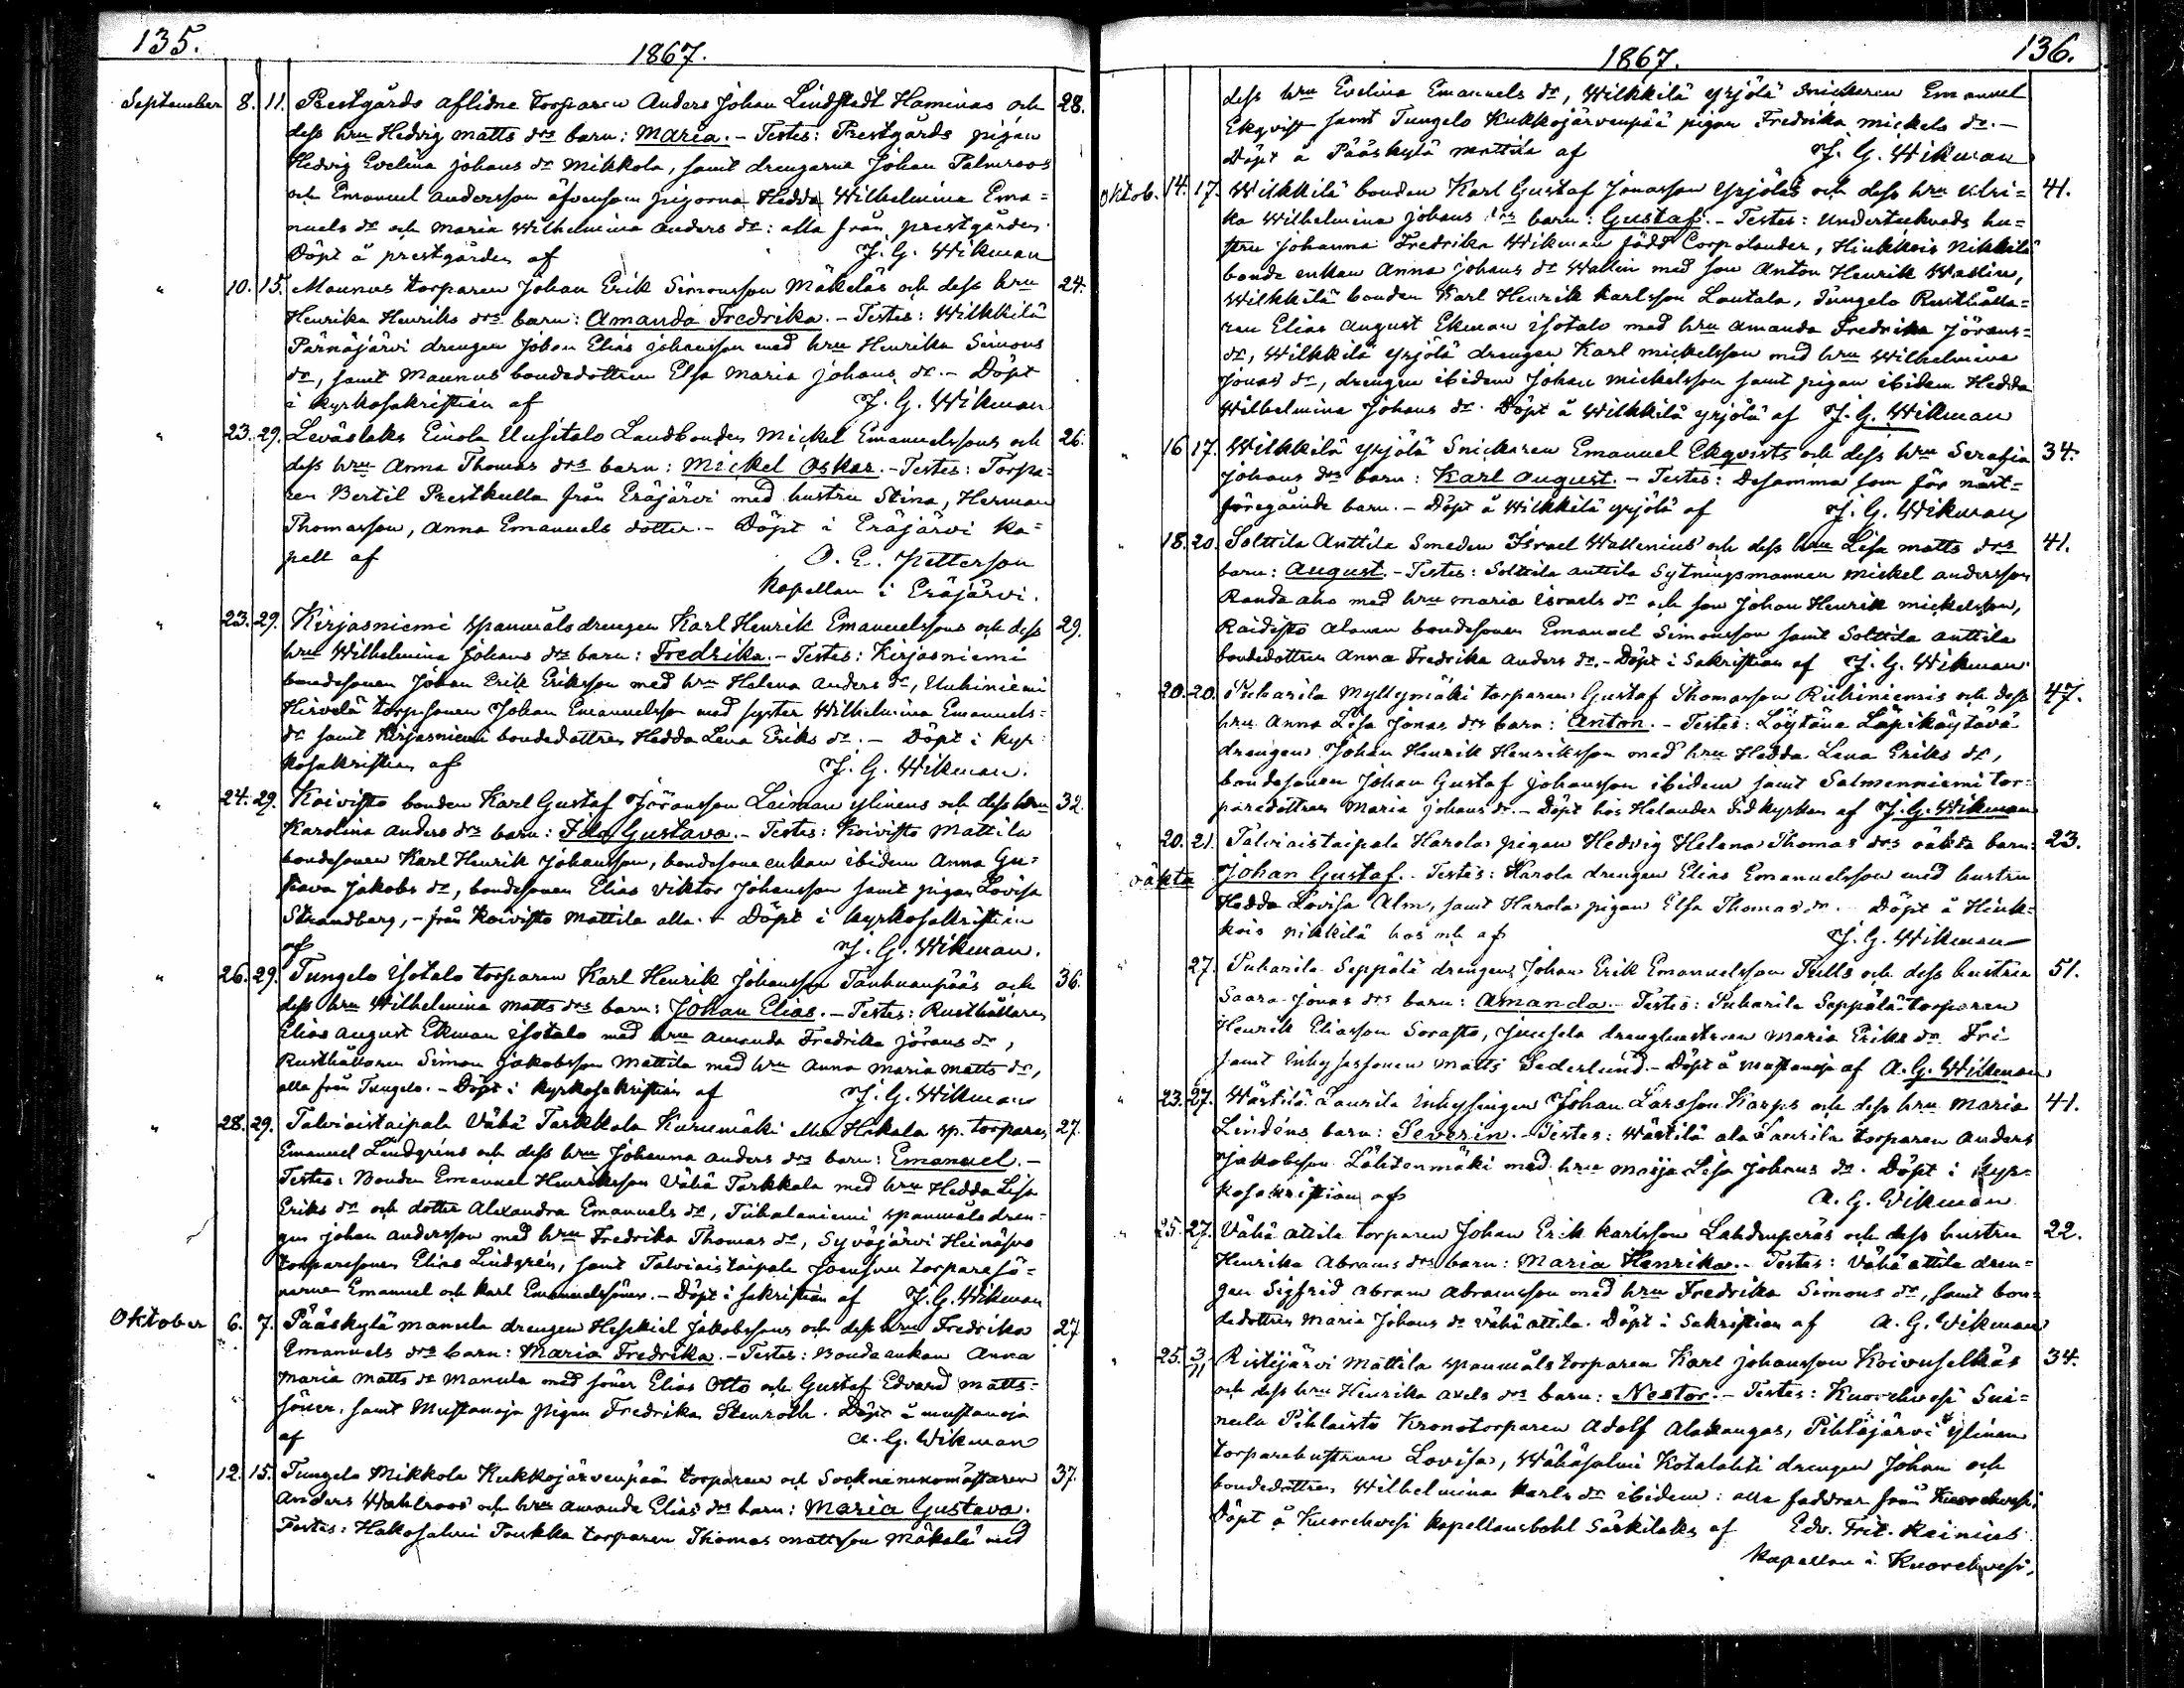 135.
1867.
September 8. 11. Prestgårds aflidne torparen Anders Johan Lindstedt Haminas och 28.
dess hru Hedvig Matts drs barn: Maria. - Testes: Prestgårds pigan
Hedvig Evelina Johans dr Mikkola, samt drengarne Johan Palmroos
och Emanuel Andersson äfvensom pigorna Hedda Wilhelmina Ema=
nuels dr och Maria Wilhelmina Anders dr: alla från prestgården.
Döpt å prestgården af J. G. Wikman
" 10. 15. Maunus torparen Johan Erik Simonsson Mäkeläs och dess hru 24.
Henrika Henriks drs barn: Amanda Fredrika. - Testes: Wilkkilä
Pärnäjärvi drengen Johan Elias Johansson med hru Henrika Simons
dr, samt Maunus bondedottren Elsa Maria Johans dr. - Döpt
i kyrkosakristian af J. G. Wikman
" 23. 29. Leväslaks Einola Uusitalo Landbonden Mickel Emanuelssons och 26.
dess hru Anna Thomas drs barn: Mickel Oskar. - Testes: Torpa=
ren Bertil Prestkulla från Eräjärvi med hustru Stina, Herman
Thomasson, Anna Emanuels dotter. - Döpt i Eräjärvi ka=
pell af O. E. Petterson
Kapellan i Eräjärvi.
" 23. 29. Kirjasniemi spanmålsdrengen Karl Henrik Emanuelssons och dess 29.
hru Wilhelmina Johans drs barn: Fredrika. - Testes: Kirjasniemi
bondesonen Johan Erik Eriksson med hru Helena Anders dr, Uuhiniemi
Hirvelä torpsonen Johan Emanuelsson med syster Wilhelmina Emanuels=
dr samt Kirjasniemi bondedottren Hedda Lena Eriks dr. - Döpt i kyr=
kosakristian af J. G. Wikman.
" 24. 29. Koivisto bonden Karl Gustaf Jöransson Laiman Ylinens och dess hru 32.
Karolina Anders drs barn: Ida Gustava. - Testes: Koivisto Mattila
bondesonen Karl Henrik Johansson, bondesone enkan ibidem Anna Gu=
stava Jakobs dr, bondesonen Elias Viktor Johansson samt pigan Lovisa
Strandberg, - från Koivisto Mattila alla. - Döpt i kyrkosakristian
af J. G. Wikman.
" 26. 29. Tungelo Isotalo torparen Karl Henrik Johansson Tanhuanpääs och 36.
dess hru Wilhelmina Matts drs barn: Johan Elias. - Testes: Rusthållaren
Elias August Ekman Isotalo med hru Amanda Fredrika Jörans dr,
Rusthållaren Simon Jakobsson Mattila med hru Anna Maria Matts dr,
alla från Tungelo. - Döpt i kyrkosakristian af J. G. Wikman
" 28. 29. Talviaistaipale Vähä Tarkkala Kurumäki eller Hakala sp. torparen 27.
Emanuel Lindgréns och dess hru Johanna Anders drs barn: Emanuel. -
Testes: Bonden Emanuel Henriksson Vähä Tarkkala med hru Hedda Lisa
Eriks dr och dotter Alexandra Emanuels dr, Tiihalaniemi spanmåls dren=
gen Johan Andersson med hru Fredrika Thomas dr, Syväjärvi
torparesonen Elias Lindgrén, samt Talviaistaipale torparesö=
nerna Emanuel och Karl Emanuelssöner. - Döpt i sakristian af J. G. Wikman
Oktober 6. 7. Pääskylä Manula drengen Hesekiel Jakobssons och dess hru Fredrika 27
Emanuels drs barn: Maria Fredrika. - Testes: Bonde enkan Anna
Maria Matts dr Manula med söner Elias Otto och Gustaf Edvard Matts=
söner, samt Mustanoja pigan Fredrika Stenroth. Döpt å Mustanoja
af A. G. Wikman
" 12. 15. Tungelo Mikkola Kukkojärvenpää torparen och Sockneninomästaren 37.
Anders Wahlroos och hru Amanda Elias drs barn: Maria Gustava.
Testes: Hakosalmi Toukka torparen Thomas Mattsson Mäkelä med
136.
1867.
dess hru Evelina Emanuels dr, Wilkkilä Yrjölä Snickaren Emanuel
Ekqvist samt Tungelo Kukkojärvenpää pigan Fredrika Mickels dr. -
Döpt å Pääskylä Mattila af J. G. Wikman
Oktob. 14. 17. Wilkkilä bonden Karl Gustaf Jonasson Yrjöläs och dess hru Ulri= 41.
ka Wilhelmina Johans drs barn: Gustaf. - Testes: Undertecknads hu=
stru Johanna Fredrika Wikman född Corpolander, Hinkkois Nikkilä
bonde enkan Anna Johans dr Wallin med son Anton Henrik Wallin,
Wilkkilä bonden Karl Henrik Karlsson Lautala, Tungelo Rusthålla=
ren Elias August Ekman Isotalo med hru Amanda Fredrika Jörans=
dr, Wilkkilä Yrjölä drengen Karl Mickelsson med hru Wilhelmina
Jonas dr, drengen ibidem Johan Mickelsson samt pigan ibidem Hedda
Wilhelmina Johans dr. Döpt å Wilkkilä Yrjölä af J. G. Wikman
" 16 17. Wilkkilä Yrjölä Snickaren Emanuel Ekqvists och dess hru Serafia 34.
Johans drs barn: Karl August. - Testes: Desamma som för näst=
föregående barn. - Döpt å Wilkkilä Yrjölä af J. G. Wikman
" 18. 20. Solttila Anttila Smeden Israel Wallenius och dess hru Lisa Matts drs 41.
barn: August. - Testes: Solttila Anttila Sytningsmannen Mickel Andersson
Randa aho med hru Maria Israels dr och son Johan Henrik Mickelsson,
Raidisto Alanen bondesonen Emanuel Simonsson samt Solttila Anttila
bondedottren Anna Fredrika Anders dr. - Döpt i Sakristian af J. G. Wikman
" 20. 20. Puharila Myllymäki torparen Gustaf Thomasson Riihiniemis och dess 47.
hru Anna Lisa Jonas drs barn: Anton. - Testes: Löytäne Läpikäytävä
drengen Johan Henrik Henriksson med hru Hedda Lena Eriks dr,
bondesonen Johan Gustaf Johansson ibidem samt Salmenniemi tor=
paredottren Maria Johans dr. - Döpt hos Helander vid kyrkan af J. G. Wikman
" 20. 21. Talviaistaipale Harola pigan Hedvig Helena Thomas drs oäkta barn: 23.
oäkta Johan Gustaf. - Testes: Harola drengen Elias Emanuelsson med hustru
Hedda Lovisa Alm, samt Harola pigan Elsa Thomas dr. Döpt å Hink=
kois Nikkilä hos och af J. G. Wikman
" 27. Puharila Seppälä drengen Johan Erik Emanuelsson Tulls och dess hustru 51.
Saara Jonas drs barn: Amanda. - Testes: Puharila Seppälä torparen
Henrik Eliasson Sorasto, Juusela drenghustrun Maria Eriks dr Fri
samt inhysessonen Matts Sederlund. - Döpt å Mustanoja af A. G. Wikman
" 23. 27. Wästilä Laurila Inhysingen Johan Larsson Karps och dess hru Maria 41.
Lindéns barn: Severin. - Testes: Wästilä ala Laurila torparen Anders
Jakobsson Lähtenmäki med hru Maija Lisa Johans dr. Döpt i kyr=
kosakristian af A. G. Wikman
" 25. 27. Vähä Attila torparen Johan Erik Karlsson Lahdenperäs och dess hustru 22.
Henrika Abrams drs barn: Maria Henrika. - Testes: Vähä Attila dren=
gen Sigfrid Abram Abramsson med hru Fredrika Simons dr, samt bon=
dedottren Maria Johans dr Vähä Attila. Döpt i Sakristian af A. G. Wikman
" 25. 3/11 Ristijärvi Mattila spanmålstorparen Karl Johansson Koivuselkäs 34.
och dess hru Henrika Axels drs barn: Nestor. - Testes: Kuorehvesi Sui=
nula Pihlaisto Kronotorparen Adolf Alakangas, Pihlajärvi Ylinen
torparehustrun Lovisa, Wähäsalmi Kotalahti drengen Johan och
bondedottren Wilhelmina Karls dr ibidem: alla faddrar från Kuorehvesi
Döpt å Kuorehvesi kapellansbohl Särkilaks af Edv. Frit. Reinius
Kapellan i Kuorehvesi.